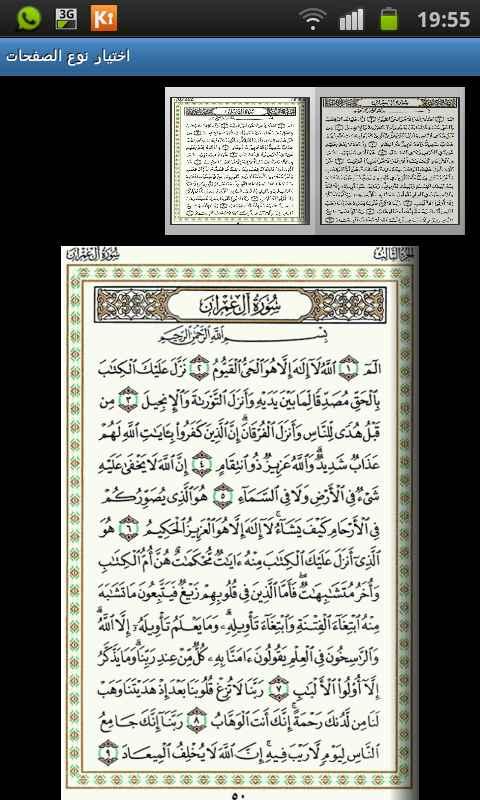 3G
19:55
اختيار نوع الصفحات
سورة آل عمران
الجزء الثالث
سُورَةُ آلِ عِمْرَانَ
بِسْمِ اللَّهِ الرَّحْمَٰنِ الرَّحِيمِ
الٓمٓ ١ اللَّهُ لَآ إِلَٰهَ إِلَّا هُوَ الْحَيُّ الْقَيُّومُ ٢ نَزَّلَ عَلَيْكَ الْكِتَٰبَ
بِالْحَقِّ مُصَدِّقًا لِّمَا بَيْنَ يَدَيْهِ وَأَنزَلَ التَّوْرَىٰةَ وَالْإِنجِيلَ ٣ مِن
قَبْلُ هُدًى لِّلنَّاسِ وَأَنزَلَ الْفُرْقَانَ ۗ إِنَّ الَّذِينَ كَفَرُوا بِـَٔايَٰتِ اللَّهِ لَهُمْ
عَذَابٌ شَدِيدٌ ۗ وَاللَّهُ عَزِيزٌ ذُو انتِقَامٍ ٤ إِنَّ اللَّهَ لَا يَخْفَىٰ عَلَيْهِ
شَىْءٌ فِي الْأَرْضِ وَلَا فِي السَّمَآءِ ٥ هُوَ الَّذِي يُصَوِّرُكُمْ
فِي الْأَرْحَامِ كَيْفَ يَشَآءُ ۚ لَآ إِلَٰهَ إِلَّا هُوَ الْعَزِيزُ الْحَكِيمُ ٦ هُوَ
الَّذِيٓ أَنزَلَ عَلَيْكَ الْكِتَٰبَ مِنْهُ ءَايَٰتٌ مُّحْكَمَٰتٌ هُنَّ أُمُّ الْكِتَٰبِ
وَأُخَرُ مُتَشَٰبِهَٰتٌ ۖ فَأَمَّا الَّذِينَ فِي قُلُوبِهِمْ زَيْغٌ فَيَتَّبِعُونَ مَا تَشَٰبَهَ
مِنْهُ ابْتِغَآءَ الْفِتْنَةِ وَابْتِغَآءَ تَأْوِيلِهِ ۗ وَمَا يَعْلَمُ تَأْوِيلَهُٓ إِلَّا اللَّهُ ۗ
وَالرَّٰسِخُونَ فِي الْعِلْمِ يَقُولُونَ ءَامَنَّا بِهِ كُلٌّ مِّنْ عِندِ رَبِّنَا ۗ وَمَا يَذَّكَّرُ
إِلَّآ أُولُوا الْأَلْبَٰبِ ٧ رَبَّنَا لَا تُزِغْ قُلُوبَنَا بَعْدَ إِذْ هَدَيْتَنَا وَهَبْ
لَنَا مِن لَّدُنكَ رَحْمَةً ۚ إِنَّكَ أَنتَ الْوَهَّابُ ٨ رَبَّنَآ إِنَّكَ جَامِعُ
النَّاسِ لِيَوْمٍ لَّا رَيْبَ فِيهِ ۚ إِنَّ اللَّهَ لَا يُخْلِفُ الْمِيعَادَ ٩
٥٠